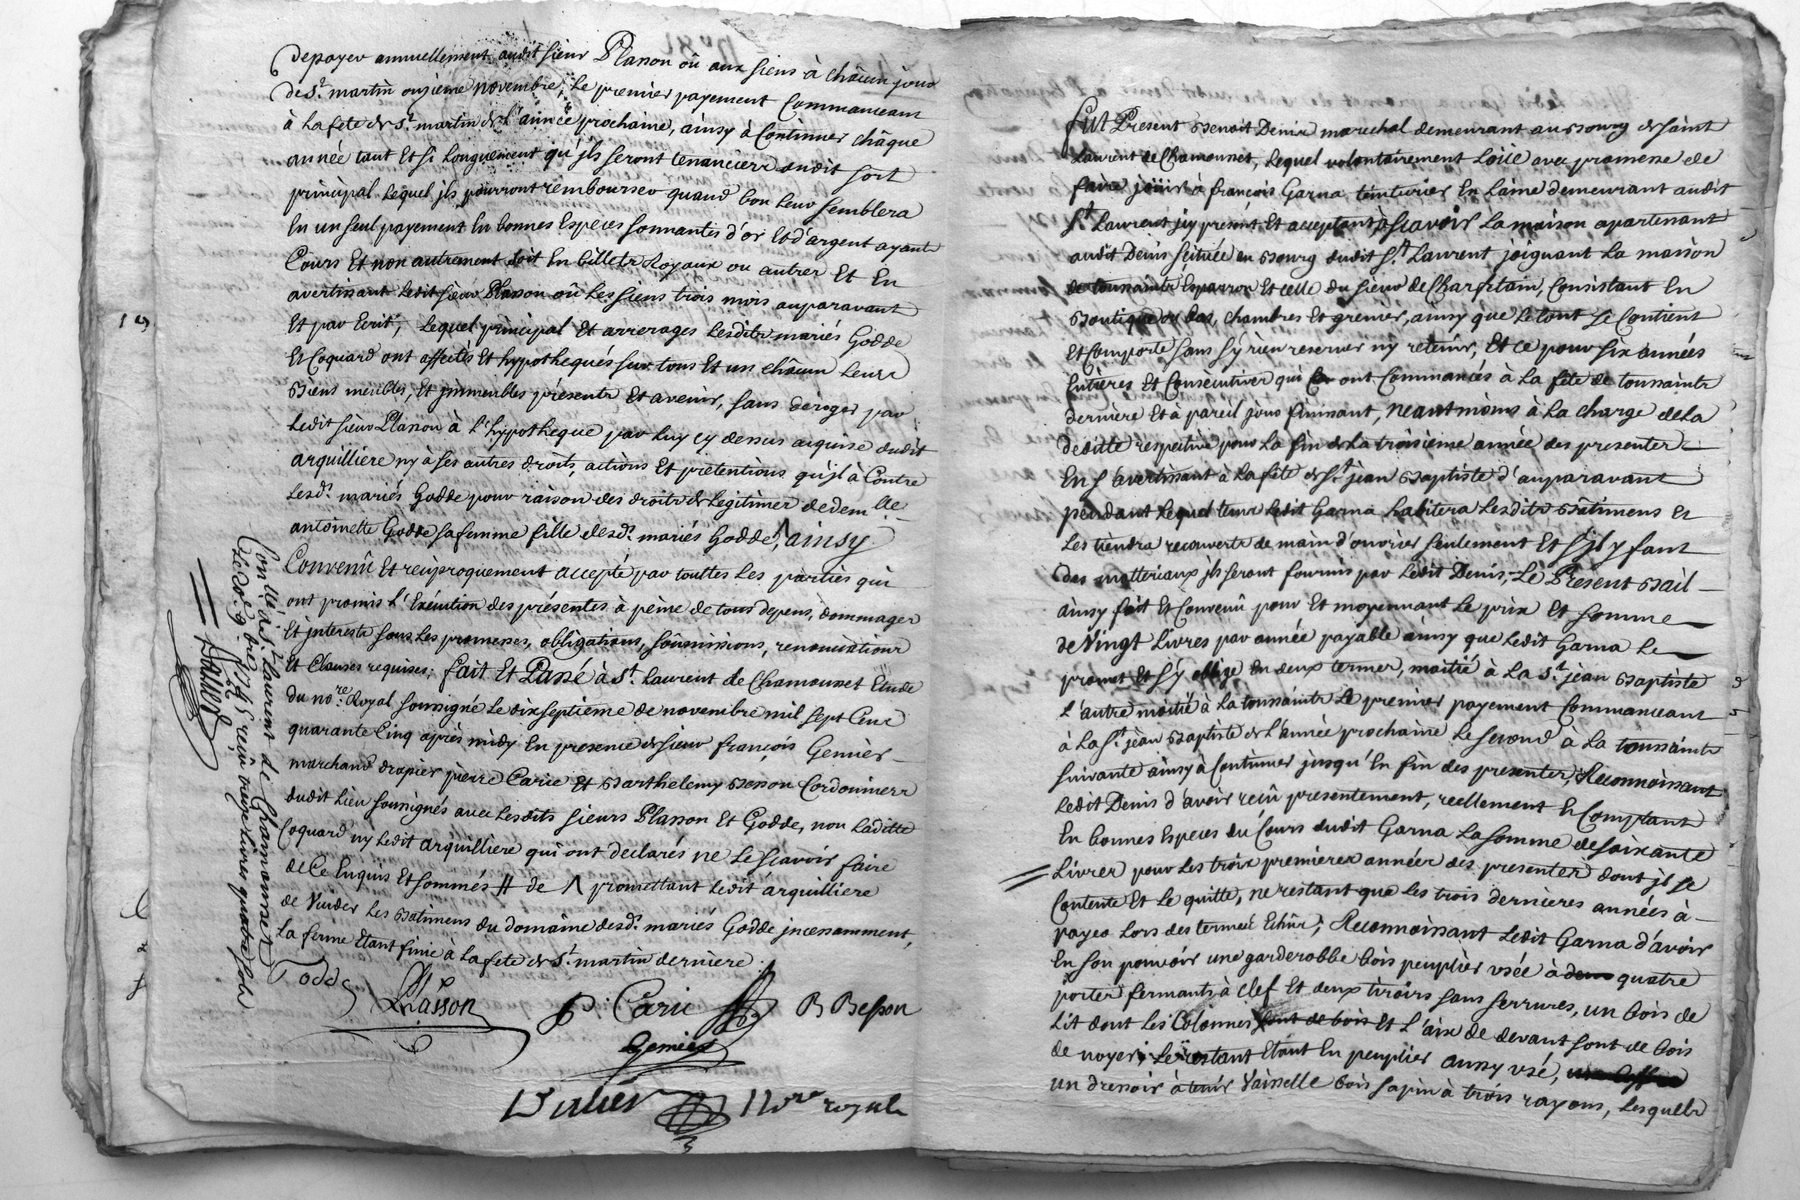 depayer annuellement audit sieur Plasson oû aux siens à châcun jour
de St. martin onzieme novembre, Le premier payement Commanceant
à La fete de St. martin de L'année prochaine, ainsy à Continuer châque
année tant Et si Longuement qu'jls seront tenanciers dudit sort
principal Lequel jls pourront rembourser quand bon Leur semblera
En un seul payement En bonnes Especes sonnantes d'or Et d'argent ayant
Cours Et non autrement soit En billets Royaux ou autres Et En
avertissant Ledit sieur Plasson oû Les siens trois mois auparavant
Et par Ecrit, Lequel principal Et arrerages Lesdits mariés Godde
Et Coquard ont affectés Et hypothequés sur tous Et un châcun Leurs
Biens meubles, Et jmmeubles présents Et avenir, sans deroger par
Ledit sieur Plasson à L'hypotheque par Luy cy dessus acquise dudit
arquilliere ny à ses autres droits, actions Et prétentions qu'jl à Contre
Lesd. mariés Godde pour raison des droits de Legitimes de demlle
antoinette Godde sa femme fille desd. mariés Godde, ainsy
Convenû Et reciproquement accepté par touttes Les parties qui
ont promis L'Exécution des présentes à peine de tous depens, dommages
Et jnterests sous Les promesses, obligations, soûmissions, renonciations
Et Clauses requises; fait Et Passé à St. Laurent de Chamousset Etude
du nore. Royal soussigné Le dix septieme de novembre mil sept Cent
quarante Cinq après midy En presence de sieur françois Genier
marchand drapier pierre Carie Et Barthelemy Besson Cordonniers
dudit Lieu soussignés avec Lesdits sieurs Plasson Et Godde, non Laditte
Coquard ny Ledit arquilliere qui ont declarés ne Le scavoir faire
de Ce Enquis Et sommés # de Λ promettant Ledit arquilliere
de Vuider Les Batimens du domaine desd. mariés Godde jncessamment,
La ferme Etant finie à La fete de St. martin derniere.
Godde
Plasson
P. Carie
B Besson
Genier
Nore royal
Con.lle à St. Laurent de Chamousset
Le 29. 9bre 1745 reçû treize Livres quatre sols
fut Present Benoit Denis marechal demeurant au Bourg de saint
Laurent de Chamousset, Lequel volontairement Loüe avec promesse de
faire joüir à françois Garna teinturier En Laine demeurant audit
St. Laurent jcy present Et acceptant, scavoir La maison apartenant
audit Denis scituée au Bourg dudit St. Laurent joignant La maison
de toussaints Esparron Et celle du sieur de Charfetain, Consistant En
Boutique bas, chambres Et grenier, ainsy que Le tout se Contient
Et Comporte sans s'y rien reserver ny retenir, Et ce pour six années
Entières Et Consecutives qui ont Commancés à La fete de toussaints
derniere Et à pareil jour finissant, neantmoins à La charge de La
deditte respective pour La fin de La troisieme année des presentes
En s'avertissant à La fete de St. jean Baptiste d'auparavant
pendant Lequel tems Ledit Garna habitera Lesdits Bâtimens Et
Les tiendra recouverts de main d'ouvrier seulement Et s'jl y faut
des matteriaux jls seront fournis par Ledit Denis, Le Present Bail
ainsy fait Et Convenû pour Et moyennant Le prix Et somme
de Vingt Livres par année payable ainsy que Ledit Garna Le
promet Et s'y oblige En deux termes, moitié à La St. jean Baptiste
L'autre moitié à La toussaints Le premier payement Commanceant
à La St. jean Baptiste de L'année prochaine Le second à La toussaints
suivante ainsy à Continuer jusqu'En fin des presentes, Reconnoissant
Ledit Denis d'avoir reçû presentement, reellement Et Comptant
En bonnes Especes du Cours dudit Garna La somme de soixante
Livres pour Les trois premieres années des presentes dont jl se
Contente Et Le quitte, ne restant que Les trois dernieres années à
payer Lors des termes Echûs; Reconnoissant Ledit Garna d'avoir
En son pouvoir une garderobbe bois peuplier usée à quatre
portes fermants à Clef Et deux tiroirs sans serrures, un bois de
Lit dont Les Colonnes Et L'aix de devant sont de bois
de noyer, Le restant Etant En peuplier aussy usé,
un dressoir à tenir Vaisselle bois sapin à trois rayons, Lesquels